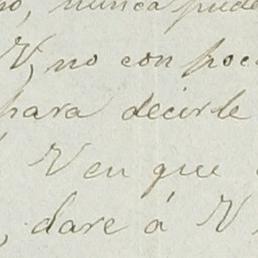 no, nunca pude
V, no con poc
para decirle
V en que
, daré á V